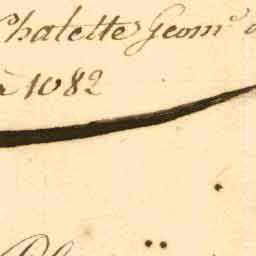 Chalette Geom.e
à 1082